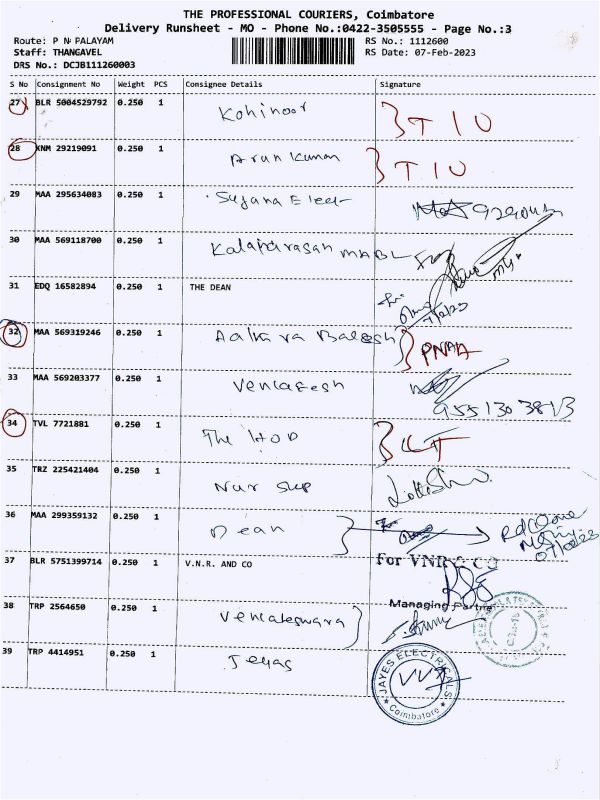 THE PROFESSIONAL COURIERS, Coimbatore
Delivery Runsheet - MO - Phone No.:0422-3505555 - Page No.:3
Route: P N PALAYAM RS No.: 1112600
Staff: THANGAVEL RS Date: 07-Feb-2023
DRS No.: DCJB111260003
S No Consignment No Weight PCS Consignee Details Signature
27 BLR 5004529792 0.250 1 Kohinoor T I U
28 KNM 29219091 0.250 1 Arun Kumar T I U
29 MAA 295634083 0.250 1 Sujana Elect
30 MAA 569118700 0.250 1
31 EDQ 16582894 0.250 1 THE DEAN 7/2/23
32 MAA 569319246 0.250 1 Balgesh PNAA
33 MAA 569203377 0.250 1 Venkatesh
34 TVL 7721881 0.250 1 The HOD
35 TRZ 225421404 0.250 1 Nur sup
36 MAA 299359132 0.250 1 Dean 07/02/23
37 BLR 5751399714 0.250 1 V.N.R. AND CO For VNR & CO
Managing Partner
38 TRP 2564650 0.250 1 Venkateswara
39 TRP 4414951 0.250 1 Jeyas JAYES ELECTRICALS Coimbatore